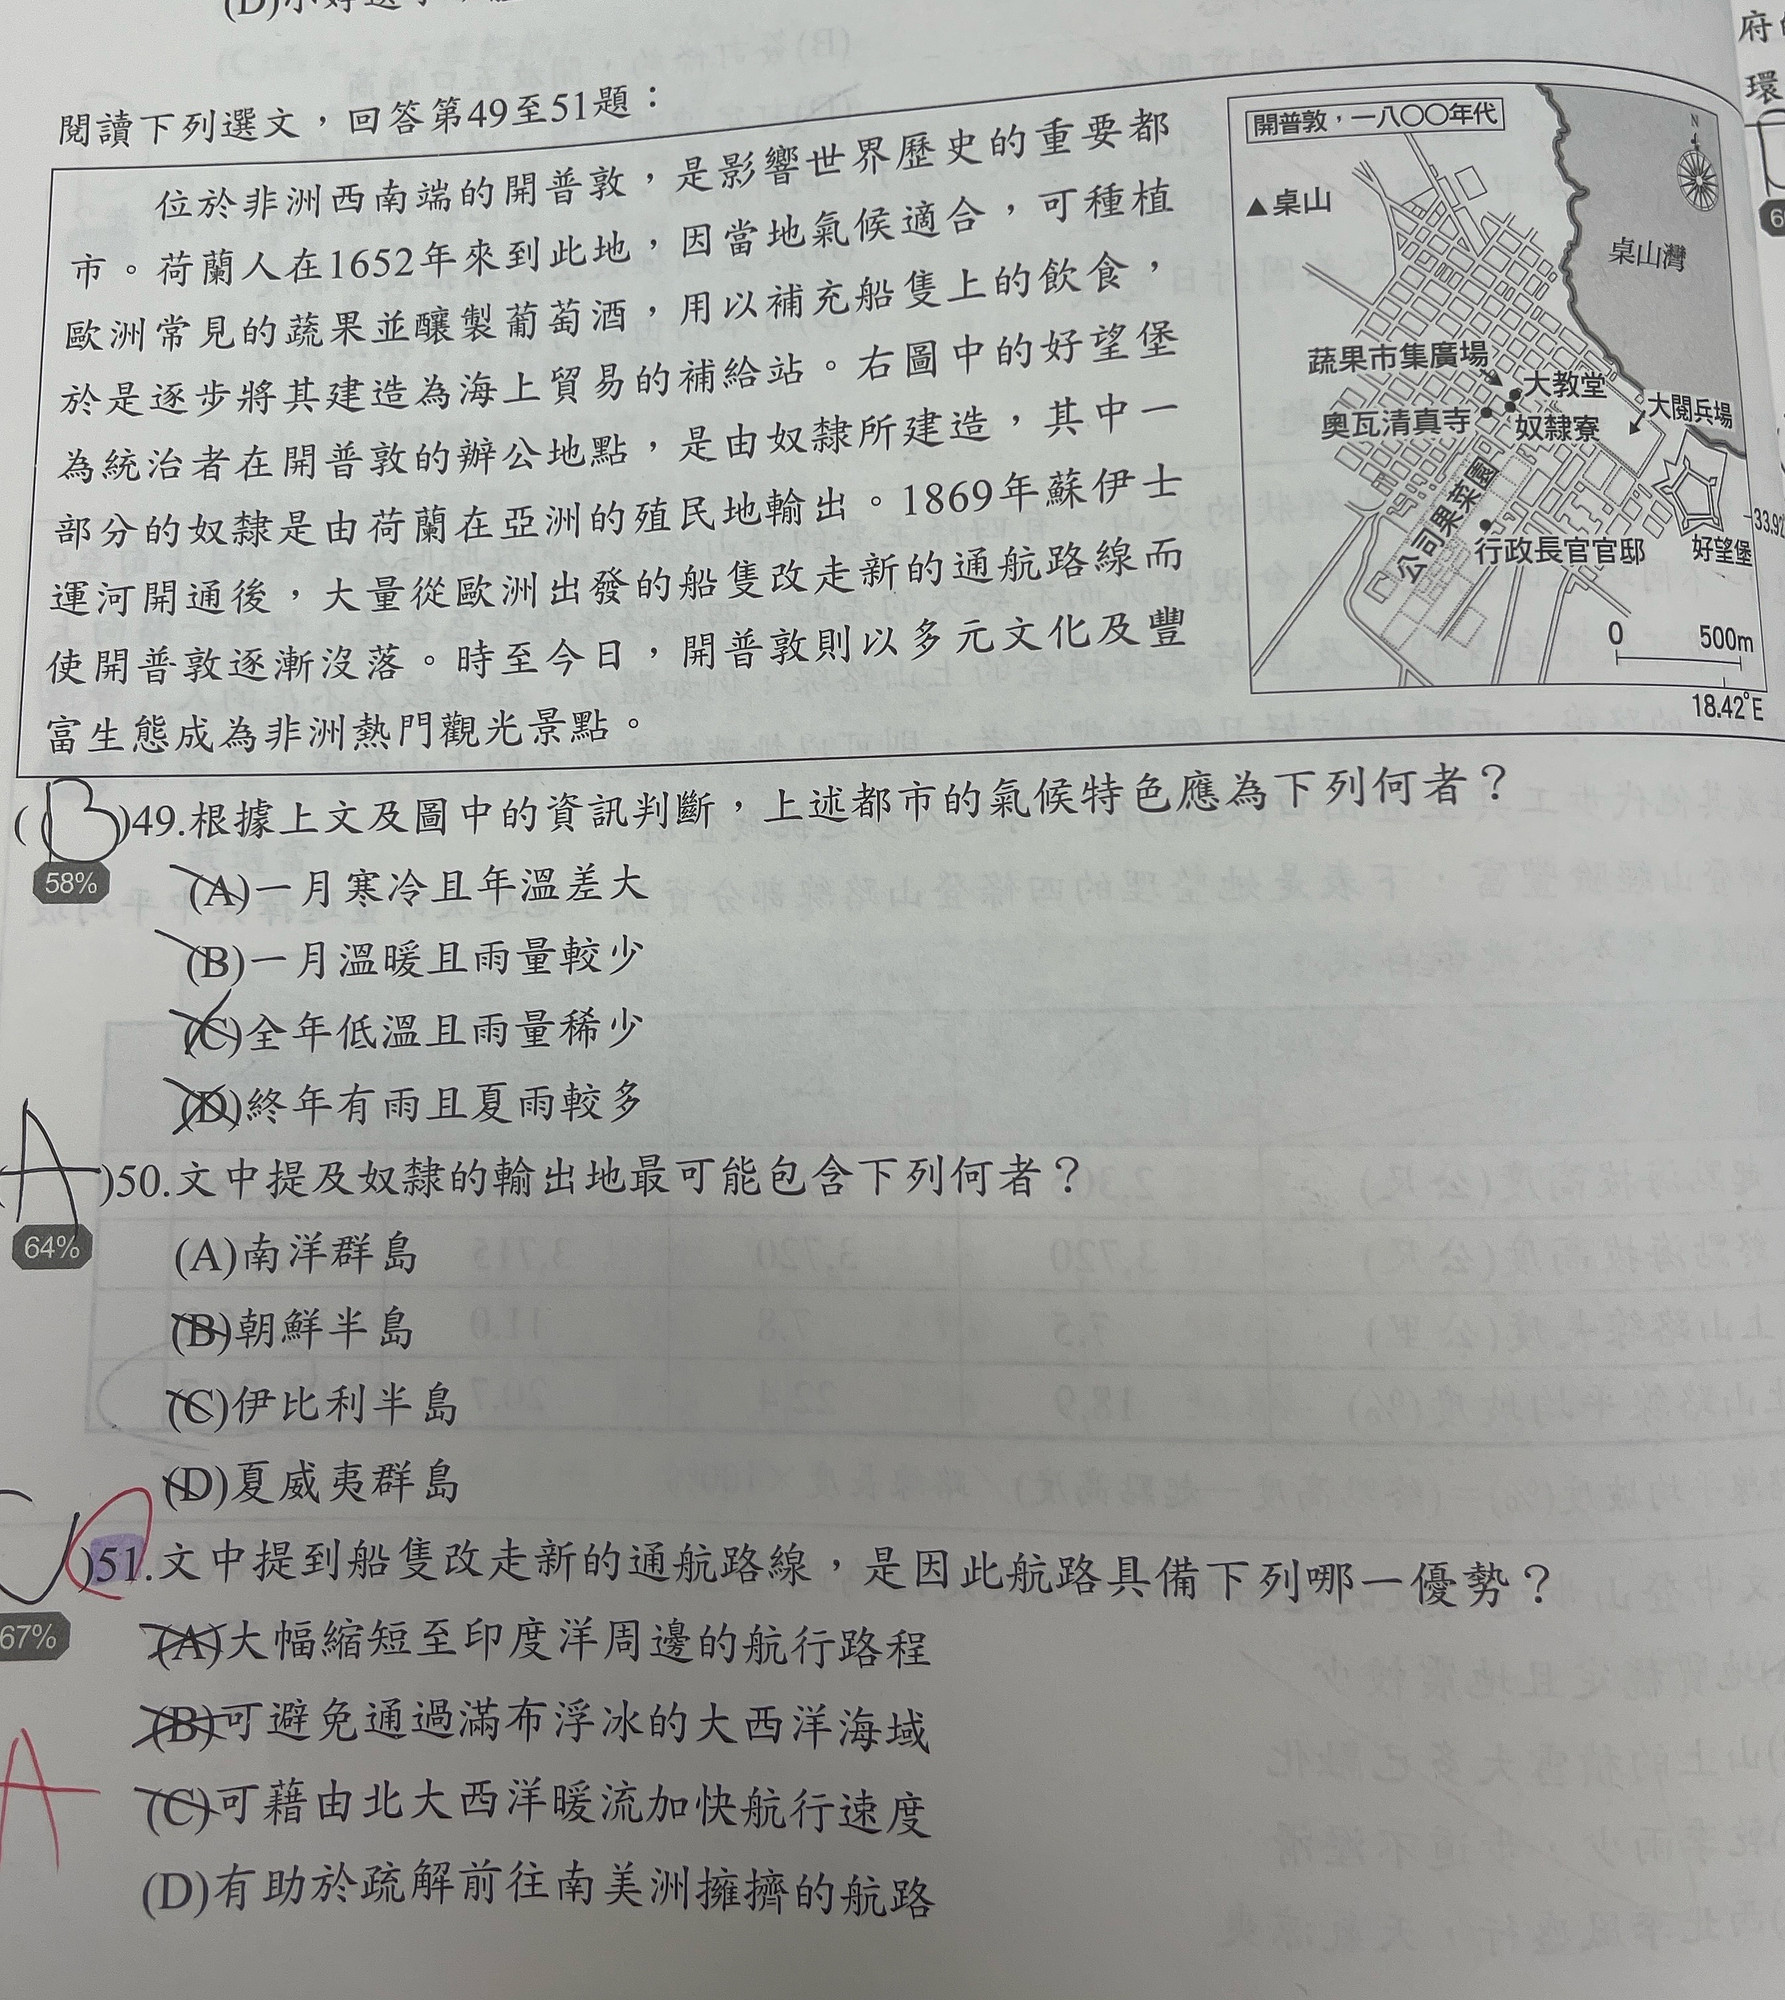 閱讀下列選文，回答第49至51題：
位於非洲西南端的開普敦，是影響世界歷史的重要都
市。荷蘭人在1652年來到此地，因當地氣候適合，可種植
歐洲常見的蔬果並釀製葡萄酒，用以補充船隻上的飲食，
於是逐步將其建造為海上貿易的補給站。右圖中的好望堡
為統治者在開普敦的辦公地點，是由奴隸所建造，其中一
部分的奴隸是由荷蘭在亞洲的殖民地輸出。1869年蘇伊士
運河開通後，大量從歐洲出發的船隻改走新的通航路線而
使開普敦逐漸沒落。時至今日，開普敦則以多元文化及豐
富生態成為非洲熱門觀光景點。
開普敦，一八〇〇年代
N
▲桌山
桌山灣
蔬果市集廣場
大教堂
大閱兵場
奧瓦清真寺
奴隸寮
公司果菜園
行政長官官邸
好望堡
33.92
0 500m
18.42°E
府
環
6
(B)49.根據上文及圖中的資訊判斷，上述都市的氣候特色應為下列何者？
58%
(A)一月寒冷且年溫差大
(B)一月溫暖且雨量較少
(C)全年低溫且雨量稀少
(D)終年有雨且夏雨較多
(A)50.文中提及奴隸的輸出地最可能包含下列何者？
64%
(A)南洋群島
(B)朝鮮半島
(C)伊比利半島
(D)夏威夷群島
)51.文中提到船隻改走新的通航路線，是因此航路具備下列哪一優勢？
67%
(A)大幅縮短至印度洋周邊的航行路程
(B)可避免通過滿布浮冰的大西洋海域
A
(C)可藉由北大西洋暖流加快航行速度
(D)有助於疏解前往南美洲擁擠的航路